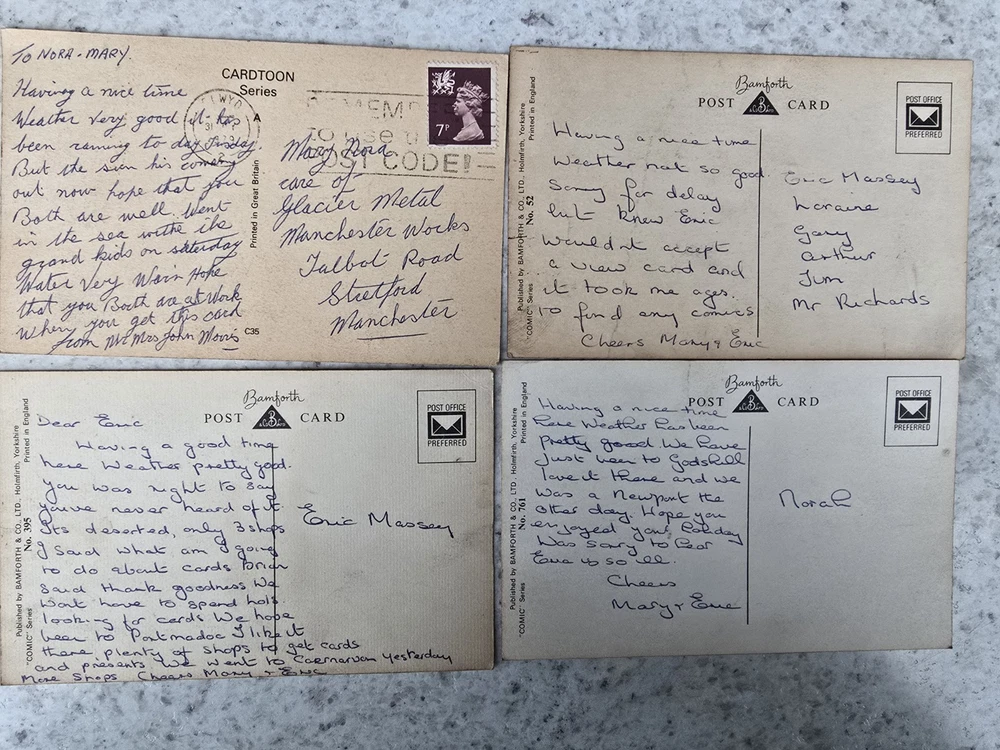 TO NORA - MARY.
CARDTOON
Series
Having a nice time
Weather very good it has
been raining to day Friday.
But the sun his coming
out now hope that you
Both are well. Went
in the sea withe the
grand kids on saturday
Water Very Warm Hope
that you Booth are at Work
When you get this card
from Mr Mrs John Morris
CLWYD
A
Printed in Great Britain
C35
7P
REMEMBER
TO USE THE
POST CODE!
Mary Nora
care of
Glacier Metal
Manchester Works
Talbot Road
Stretford
Manchester
Bamforth
POST CARD
B
& Co Ltd
POST OFFICE
PREFERRED
Published by BAMFORTH & CO., LTD., Holmfirth, Yorkshire
Printed in England
"COMIC" Series
No. 52
Having a nice time
Weather not so good.
Sorry for delay
but knew Eric
wouldnt accept
a view card and
it took me ages.
to find any comics
Cheers Mary & Eric
Eric Massey
Loraine
Gary
Arthur
Jim
Mr Richards
Bamforth
POST CARD
B
& Co Ltd
POST OFFICE
PREFERRED
Published by BAMFORTH & CO., LTD., Holmfirth, Yorkshire
Printed in England
"COMIC" Series
No. 395
Dear Eric
Having a good time
here Weather pretty good.
You was right to say
you've never heard of it.
Its deserted, only 3 shops
I said what am I going
to do about cards Brian
said thank goodness We
wont have to spend hols
looking for cards We have
been to Portmadoc I like it
there plenty of shops to get cards
and presents We went to Caernarvon yesterday
More Shops Cheers Mary & Eric
Eric Massey
Bamforth
POST CARD
B
& Co Ltd
POST OFFICE
PREFERRED
Published by BAMFORTH & CO., LTD., Holmfirth, Yorkshire
Printed in England
"COMIC" Series
No. 761
Having a nice time
here Weather has been
pretty good We have
just been to Godshill
love it there and we
was a Newport the
other day. Hope you
enjoyed your holiday
Was sorry to hear
Eric is so ill.
Cheers
Mary & Eric
Norah